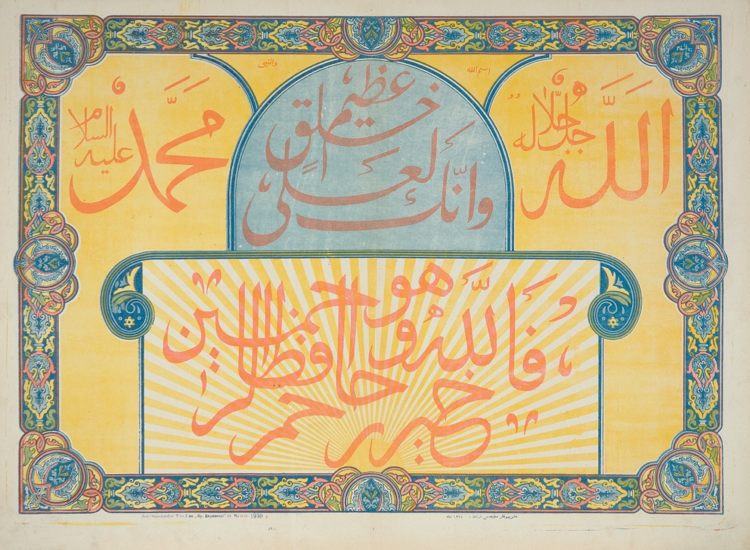 اسم الله
والنبي
الله جل جلاله
محمد عليه السلام
وانك لعلى خلق عظيم
فالله خير حافظا وهو ارحم الراحمين
1330